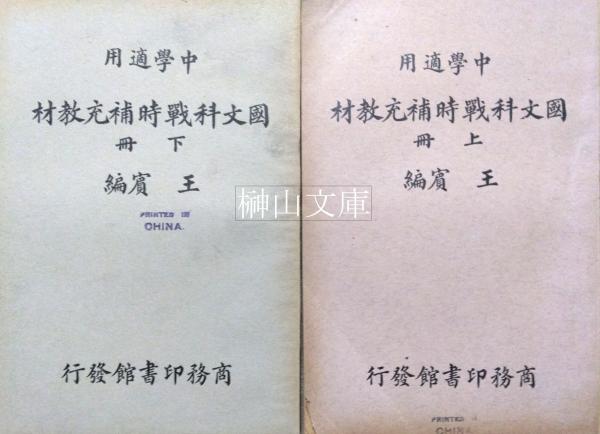 中學適用
國文科戰時補充教材
上冊
王賓編
商務印書館發行
PRINTED IN
CHINA
中學適用
國文科戰時補充教材
下冊
王賓編
PRINTED IN
CHINA.
商務印書館發行
榊山文庫